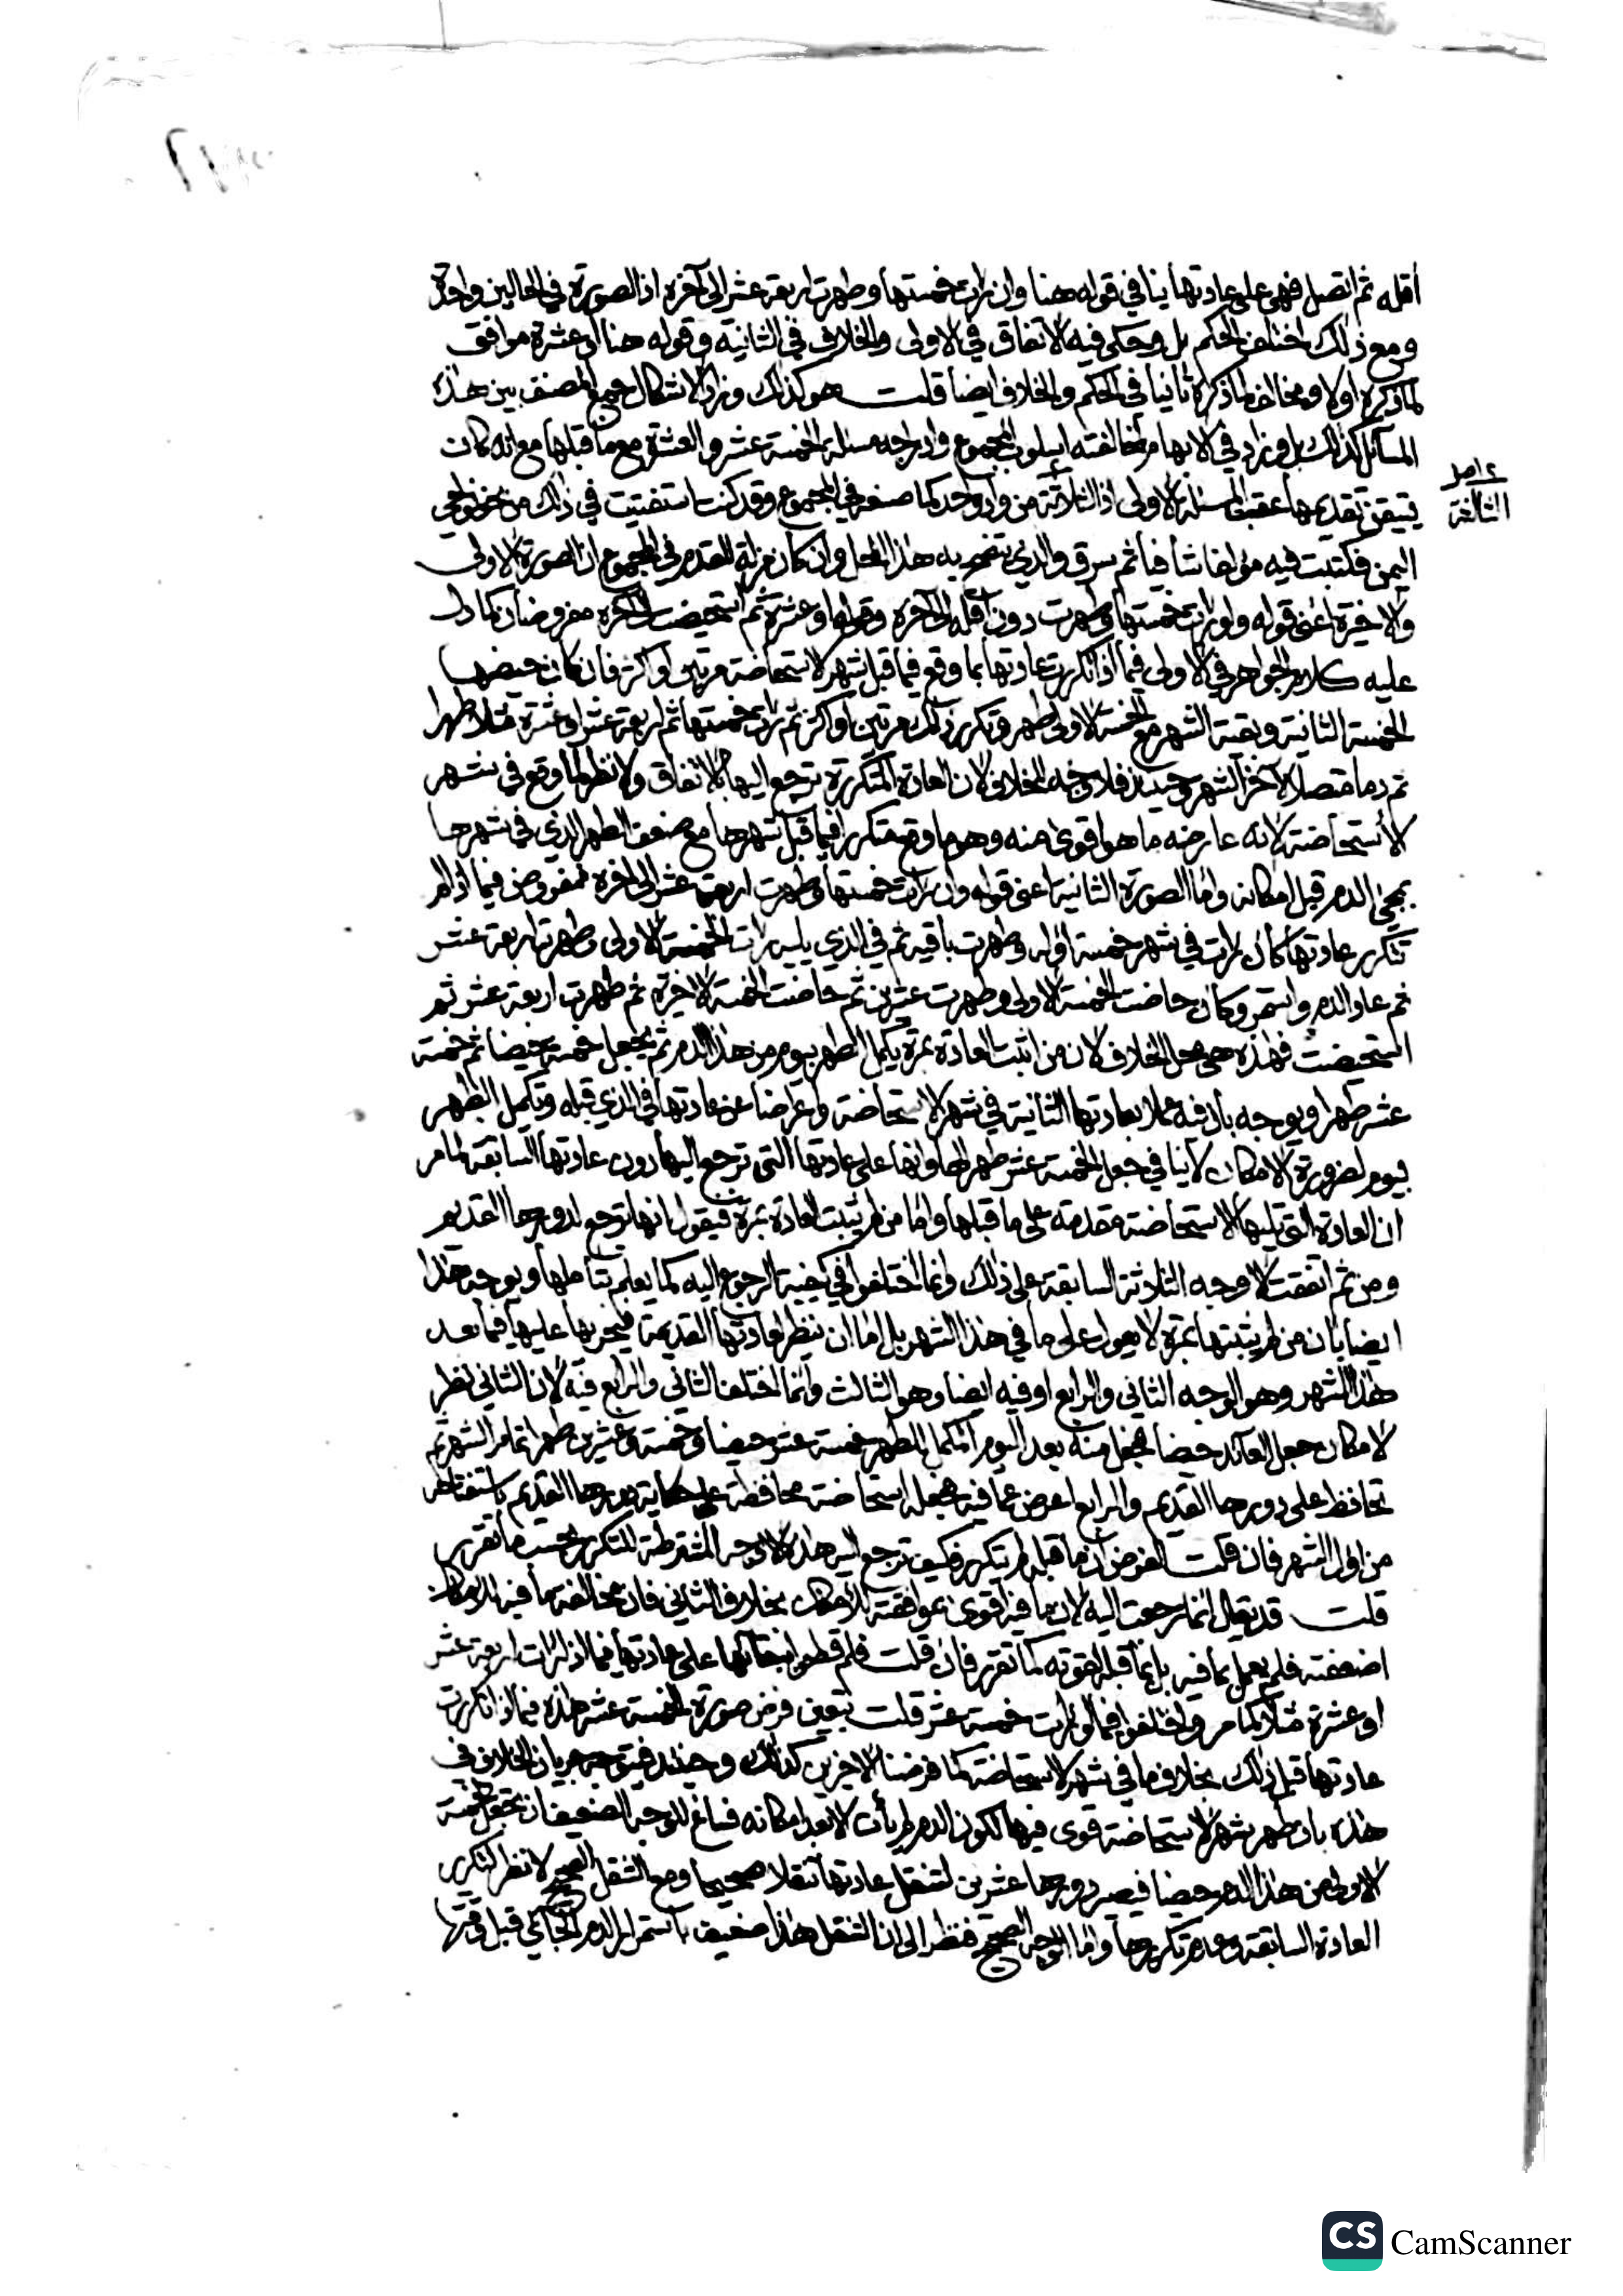 أقله ثم اتصل فهي على عادتها ينافي قوله هنا وان رات خمستها وطهرت اربعة عشر الى آخره اذ الصورة في الحالين واحدة
ومع ذلك اختلف الحكم بل وحكى فيه الاتفاق في الاولى والخلاف في الثانية وقوله هنا او عشرة موافق
لما ذكره اولا ومخالف لما ذكره ثانيا في الحكم والخلاف ايضا قلت هو كذلك ويزيد الاشكال جمع المصنف بين هذه
المسائل كذلك بل ويزيد في الابهام مخالفته اسلوب المجموع وادراجه مسئلة الخمسة عشر والعشرة مع ما قبلها مع انه كان
يتعين تقديمها عقب المسئلة الاولى اذ الثلاثة من واد واحد كما صنعه في المجموع وقد كنت استفتيت في ذلك من نحو
الثالثة
اليمن فكتبت فيه مؤلفا شافيا ثم سرق والذي يتضح به هذا المحل وان كان مزلة للقدم في المجموع ان الصورة الاولى
والاخيرة اعني قوله ولو رات خمستها وطهرت دون اقله الى آخره وقوله او عشرة ثم استحيضت الى آخره مفروضتان كما دل
عليه كلام الجواهر في الاولى فيما اذا تكررت عادتها بما وقع فيما قبل شهر الاستحاضة مرتين او اكثر فان كان حيضها
الخمسة الثانية وبقية الشهر مع الخمسة الاولى طهر وتكرر ذلك مرتين او اكثر ثم رات خمستها ثم اربعة عشر او عشرة مثلا طهرا
ثم دما متصلا لآخر الشهر وحينئذ فلا وجه للخلاف لان العادة المتكررة ترجع اليها بالاتفاق ولا نظر لما وقع في شهر
الاستحاضة لانه عارضه ما هو اقوى منه وهو ما وقع متكررا فيما قبل شهرها مع ضعف الطهر الذي في شهرها
بمجيء الدم قبل امكانه واما الصورة الثانية اعني قوله وان رات خمستها وطهرت اربعة عشر الى آخره فمفروض فيما اذا لم
تتكرر عادتها كأن رات في شهر خمسة اوله وطهرت باقيه ثم في الذي يليه رات الخمسة الاولى وطهرت اربعة عشر
ثم عاد الدم واستمر وكأن حاضت الخمسة الاولى وطهرت عشرين ثم حاضت الخمسة الاخيرة ثم طهرت اربعة عشر ثم
استحيضت فهذه هي محل الخلاف لان من اثبت العادة بمرة يكمل الطهر بيوم من هذا الدم ثم يجعل خمسة حيضا ثم خمسة
عشر طهرا ويوجه بأن فيه عملا بعادتها الثانية في شهر الاستحاضة واعراضا عن عادتها في الذي قبله وتكميل الطهر
بيوم لضرورة الامكان لا ينافي جعل الخمسة عشر طهرا لها وانها على عادتها التي ترجع اليها دون عادتها السابقة لما مر
ان العادة التي تليها الاستحاضة مقدمة على ما قبلها واما من لم يثبت العادة بمرة فيقول انها ترجع لدورها القديم
ومن ثم اتفقت الاوجه الثلاثة السابقة على ذلك وانما اختلفوا في كيفية الرجوع اليه كما يعلم بتأملها ويوجه هذا
ايضا بان من لم يثبتها بمرة لا يعول على ما في هذا الشهر بل اما ان ينظر لعادتها القديمة فيجريها عليها فيما بعد
هذا الشهر وهو الوجه الثاني والرابع او فيه ايضا وهو الثالث وانما اختلف الثاني والرابع فيه لان الثاني نظر
لامكان جعل العائد حيضا فجعل منه بعد اليوم المكمل للطهر خمسة عشر حيضا وخمسة وعشرين طهرا تمام الشهر ثم
تحافظ على دورها القديم والرابع اعرض عما فيه فجعله استحاضة محافظة على دورها القديم باستفتاحه
من اول الشهر فان قلت الفرض ان ما قبله لم يتكرر فكيف ترجع اليه هذه الاوجه المشترطة للتكرر بحسب ما تقرر
قلت قد يقال انما رجعت اليه لان ما فيه اقوى بموافقته للامكان بخلاف الثاني فان مخالفة ما فيه للامكان
اضعفته فلم يعمل بما فيه بل بما قبله لقوته كما تقرر فان قلت فلم قطعوا ببقائها على عادتها فيما اذا رات اربعة عشر
او عشرة مثلا كما مر واختلفوا فيما لو رات خمسة عشر قلت يتعين فرض صورة الخمسة عشر هذه فيما اذا تكررت
عادتها قبل ذلك بخلاف ما في شهر الاستحاضة كما فرضنا الاخيرين كذلك وحينئذ فيتوجه جريان الخلاف في
هذه بان طهر شهر الاستحاضة قوي فيها لكون الدم لم يأت الا بعد امكانه فساغ للوجه الضعيف ان يجعل خمسة
الاولى من هذا الدم حيضا فيصير دورها عشرين لتنقل عادتها تنقلا صحيحا ومع التنقل الصحيح لا نظر لتكرر
العادة السابقة وعدم تكررها واما الوجه الصحيح فنظر الى ان التنقل هذا ضعيف باستمرار الدم الجائي قبل وقتها
CS CamScanner